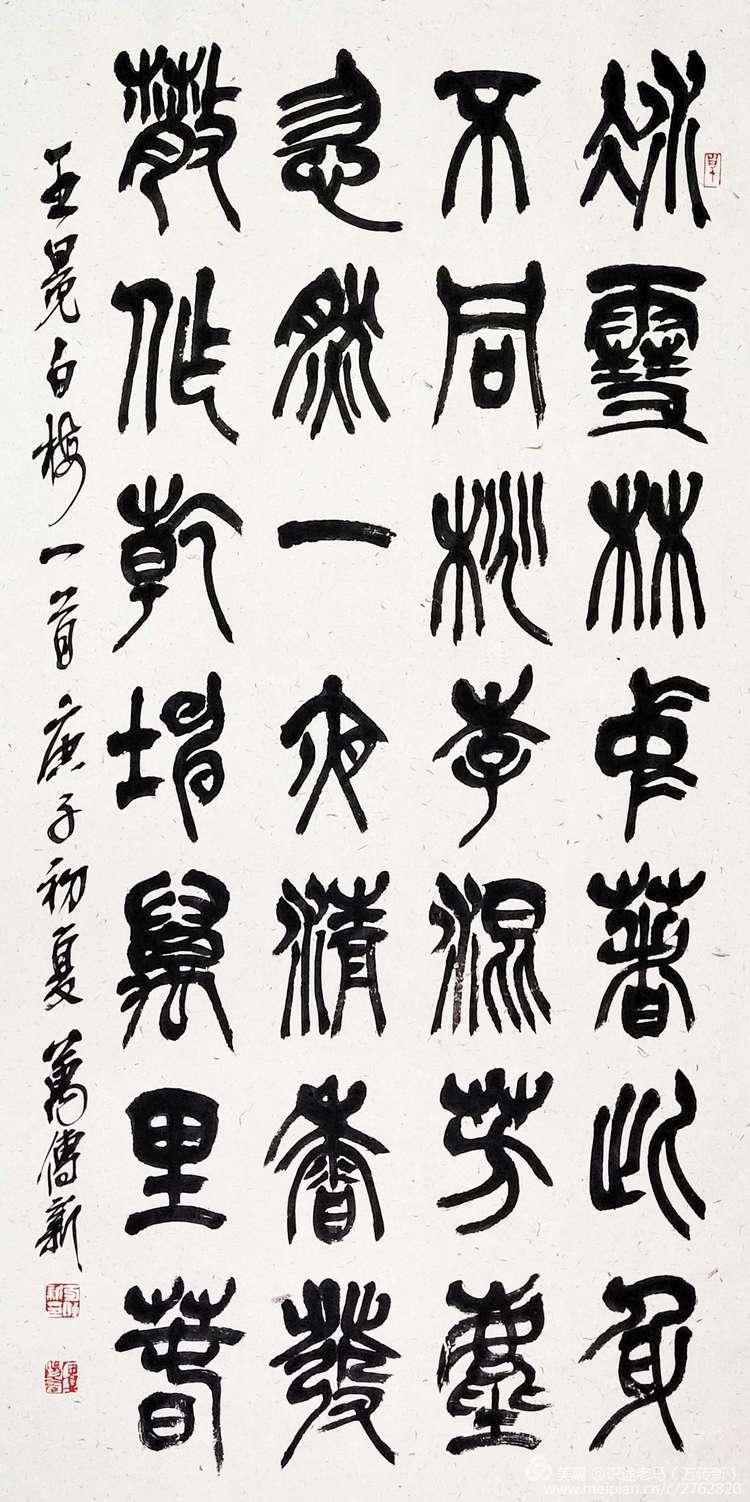 冰雪林中著此身
不同桃李混芳塵
忽然一夜清香發
散作乾坤萬里春
王冕白梅一首庚子初夏萬傳新
美篇 @识途老马（万传新）
www.meipian.cn/c/2762820